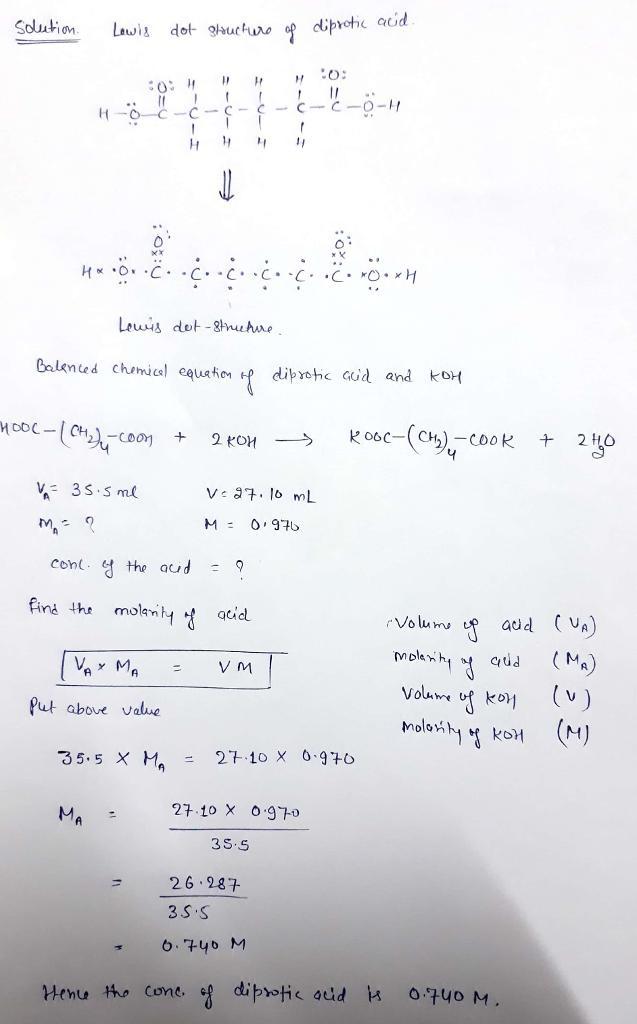 Solution. Lewis dot structure of diprotic acid.
:O: H H H H :O:
H-Ö-C-C-C-C-C-C-Ö-H
H H H H
⇓
Ö: Ö:
H× ·Ö· ·C· ·C· ·C· ·C· ·C· ·C· ×Ö· ×H
Lewis dot-structure.
Balanced chemical equation of diprotic acid and KOH
HOOC-(CH2)4-COOH + 2KOH → KOOC-(CH2)4-COOK + 2H2O
VA = 35.5 ml V = 27.10 mL
MA = ? M = 0.970
conc. of the acid = ?
find the molarity of acid
Volume of acid (VA)
VA × MA = VM
Molarity of acid (MA)
Volume of KOH (V)
Put above value
Molarity of KOH (M)
35.5 × MA = 27.10 × 0.970
MA = 27.10 × 0.970
35.5
= 26.287
35.5
= 0.740 M
Hence the conc. of diprotic acid is 0.740 M.